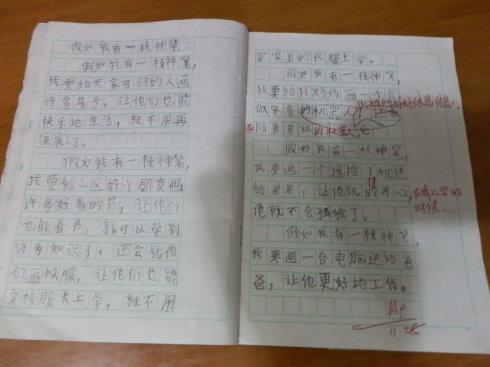 假如我有一枝神笔
假如我有一枝神笔,
我要给无家可归的人画
许多房子,让他们也能
快乐地生活,就不用再
流浪了。
假如我有一枝神笔,
我要给山区的小朋友画
许多好看的书,让他们
也能看书,就可以学到
许多知识了。还会给他
们画校服,让他们也能
穿校服去上学,就不用
穿家里的衣服上学。
假如我有一枝神笔,
我要给我妈妈画一个会
做家务的机器人,
和陪弟弟玩的机器人
假如我有一枝神笔,
我要画一个遥控飞机送
给弟弟,让他玩得开心,
在我上学的
时候,
他就不会孤独了。
假如我有一枝神笔,
我要画一台电脑送给爸
爸,让他更好地工作。
A+
11.28